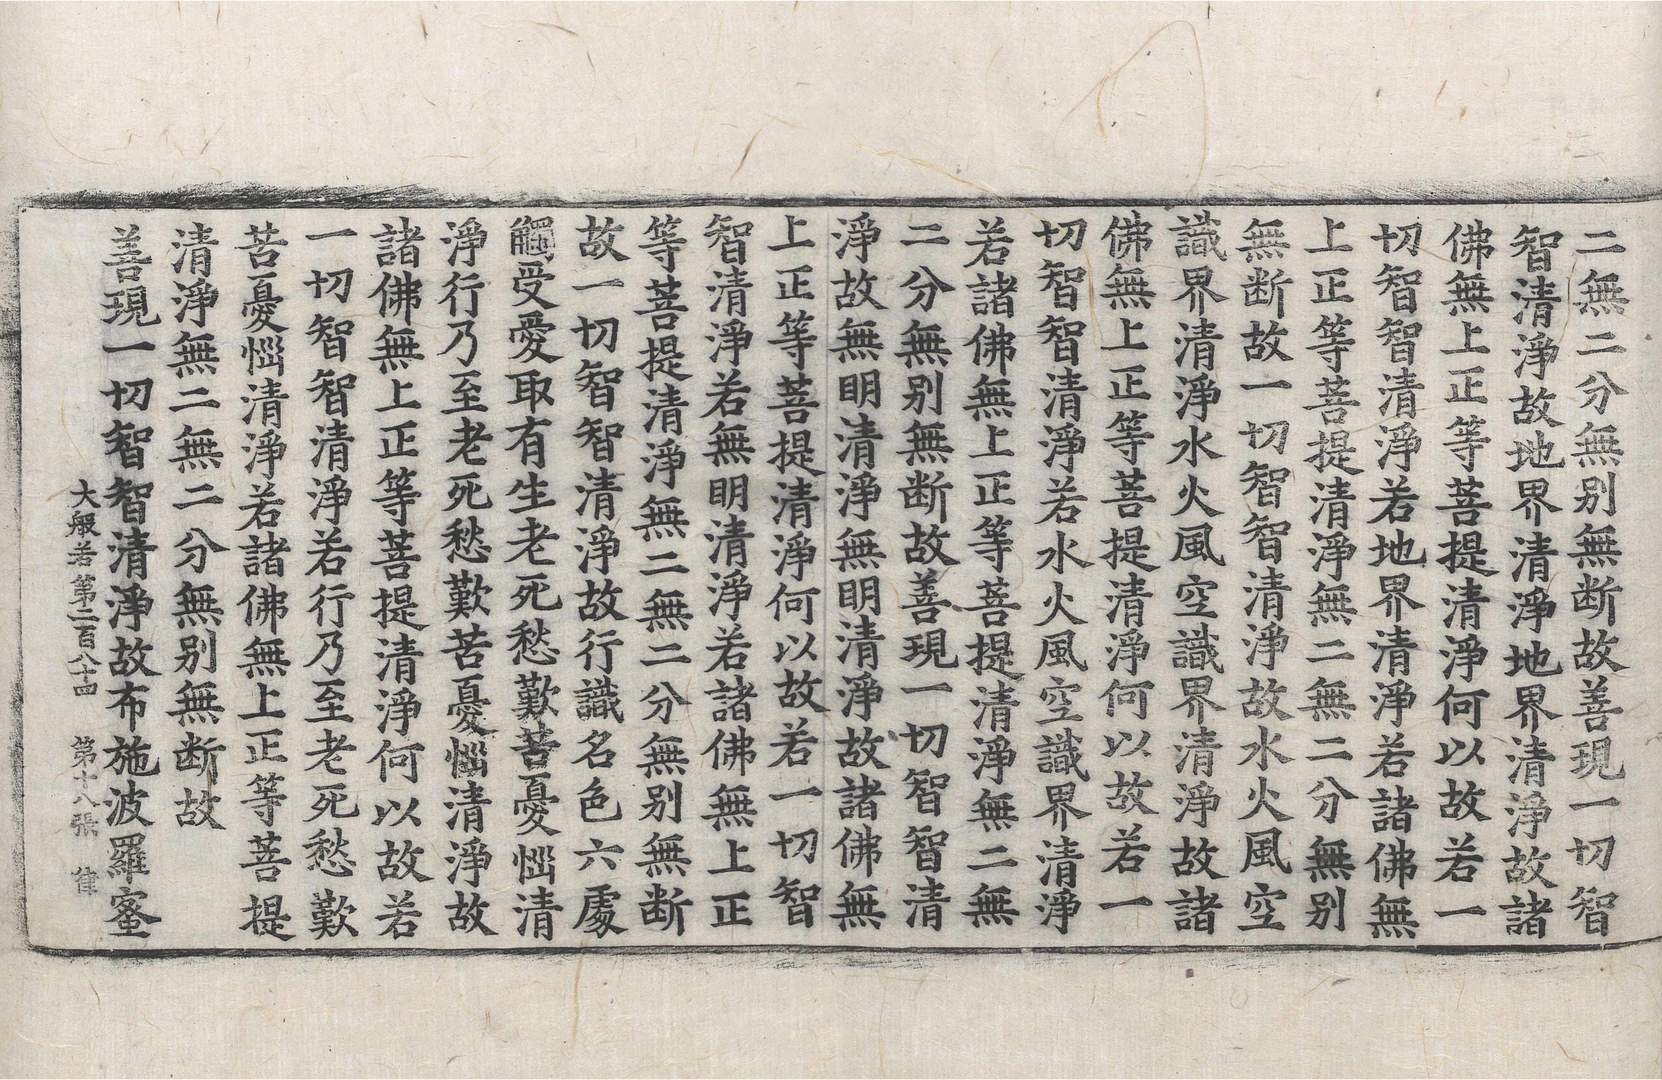 二無二分無别無断故善現一切智
智清淨故地界清淨地界清淨故諸
佛無上正等菩提清淨何以故若一
切智智清淨若地界清淨若諸佛無
上正等菩提清淨無二無二分無别
無断故一切智智清淨故水火風空
識界清淨水火風空識界清淨故諸
佛無上正等菩提清淨何以故若一
切智智清淨若水火風空識界清淨
若諸佛無上正等菩提清淨無二無
二分無别無断故善現一切智智清
淨故無明清淨無明清淨故諸佛無
上正等菩提清淨何以故若一切智
智清淨若無明清淨若諸佛無上正
等菩提清淨無二無二分無别無断
故一切智智清淨故行識名色六處
觸受愛取有生老死愁歎苦憂惱清
淨行乃至老死愁歎苦憂惱清淨故
諸佛無上正等菩提清淨何以故若
一切智智清淨若行乃至老死愁歎
苦憂惱清淨若諸佛無上正等菩提
清淨無二無二分無别無断故
善現一切智智清淨故布施波羅蜜
大般若第二百八十四 第十八張 律